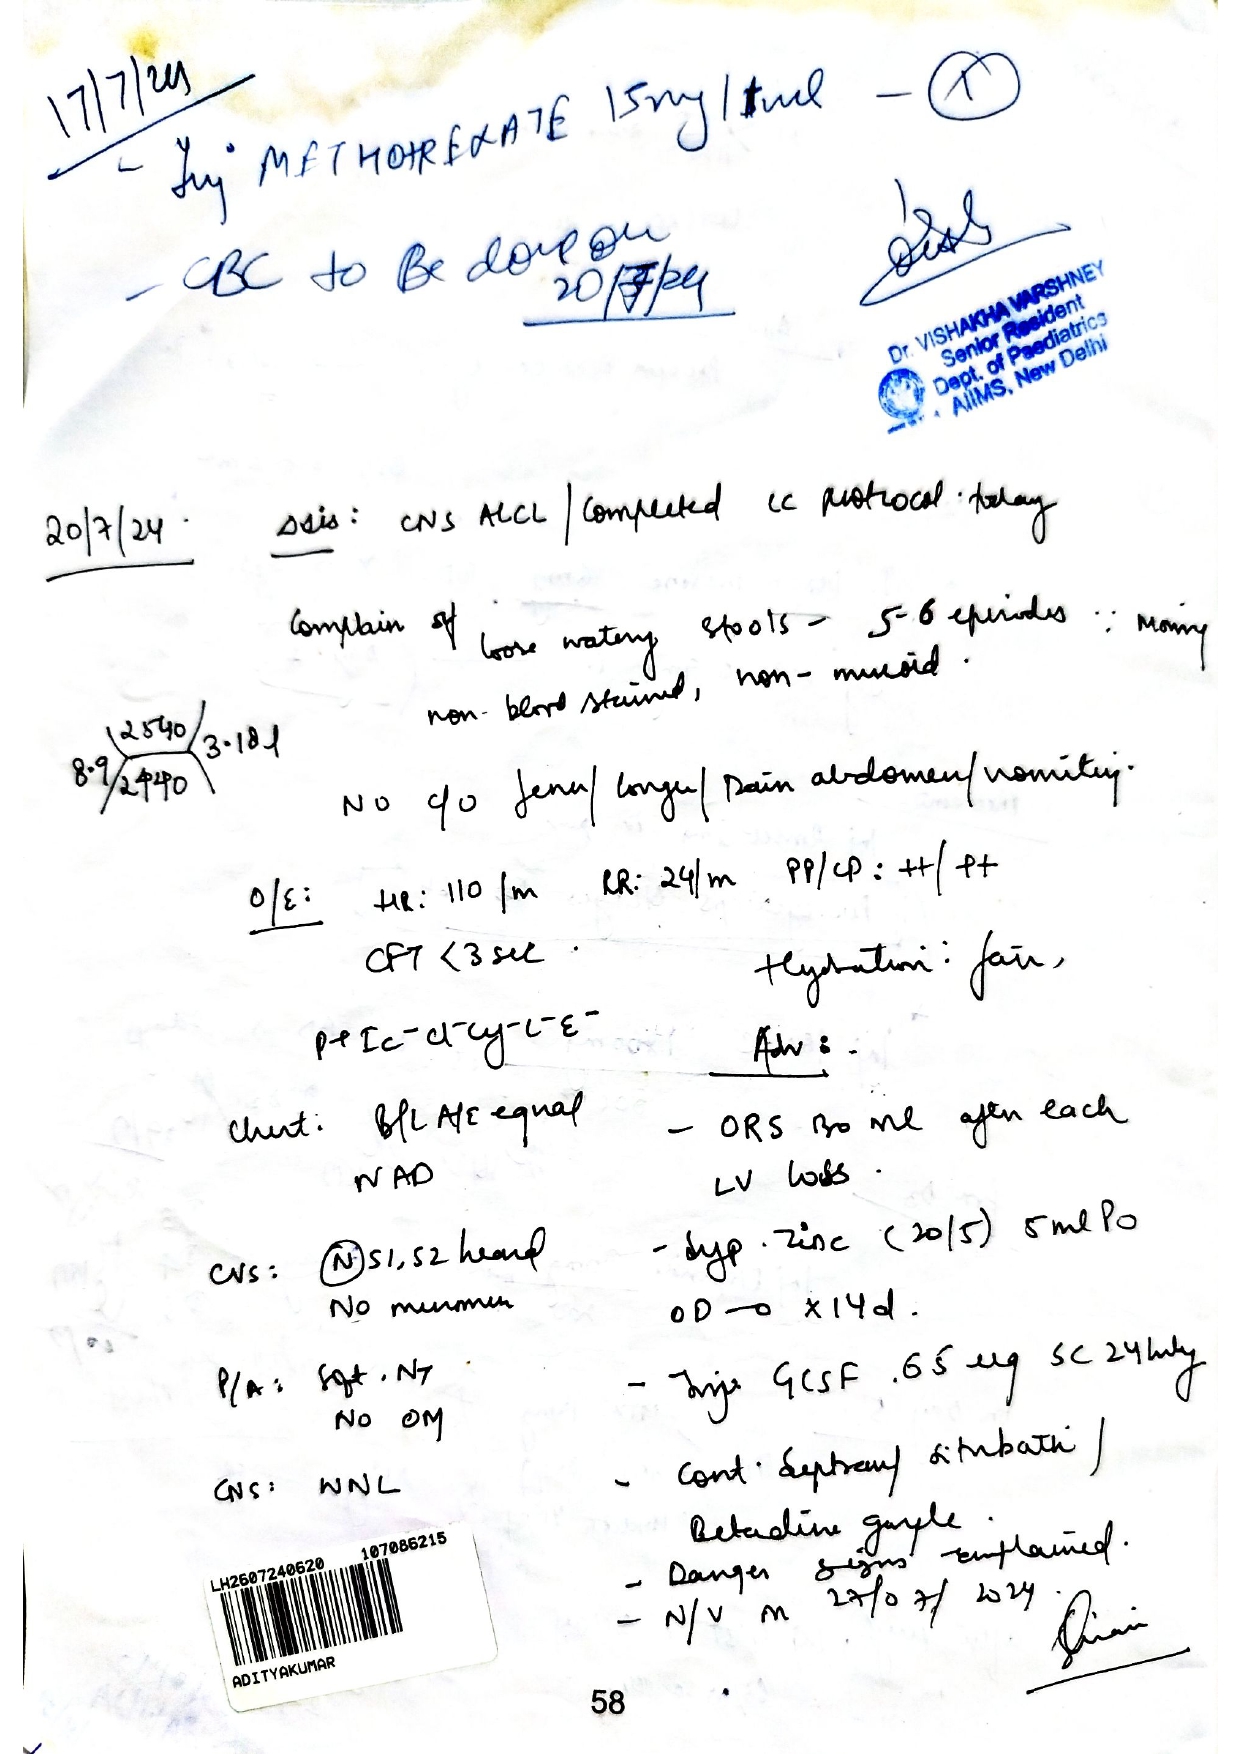 17/7/24
- Inj METHOTREXATE 15mg/1ml - 1
- CBC to Be done on
20/7/24
Dr. VISHAKHA VARSHNEY
Senior Resident
Dept. of Paediatrics
AIIMS, New Delhi
20/7/24
ssis: CNS ALCL / Completed CC protrocol today
Complain of loose watery stools - 5-6 episodes ∵ morning
non-blood stained, non-mucoid.
8.9 2540 3.18l
2440
NO c/o fever/ cough/ Pain abdomen/ vomiting.
O/E: HR: 110/m RR: 24/m PP/CP: ++/++
CFT <3 sec
Hydration: fair,
P+ Ic- Cl- Cy- L- E-
Adv:
Chest: B/L A/E equal
NAD
- ORS ml after each
LV loss.
CVS: N S1, S2 heard
No murmur
- Syp. Zinc (20/5) 5ml PO
OD x 14d.
P/A: Soft. NT
NO OM
- Inj. GCSF 65 ug SC 24hrly
CNS: WNL
- Cont. Septran/ sitzbath/
Betadine gargle.
- Danger signs explained.
- N/V on 27/07/2024.
LH2607240620 107086215
ADITYAKUMAR
58